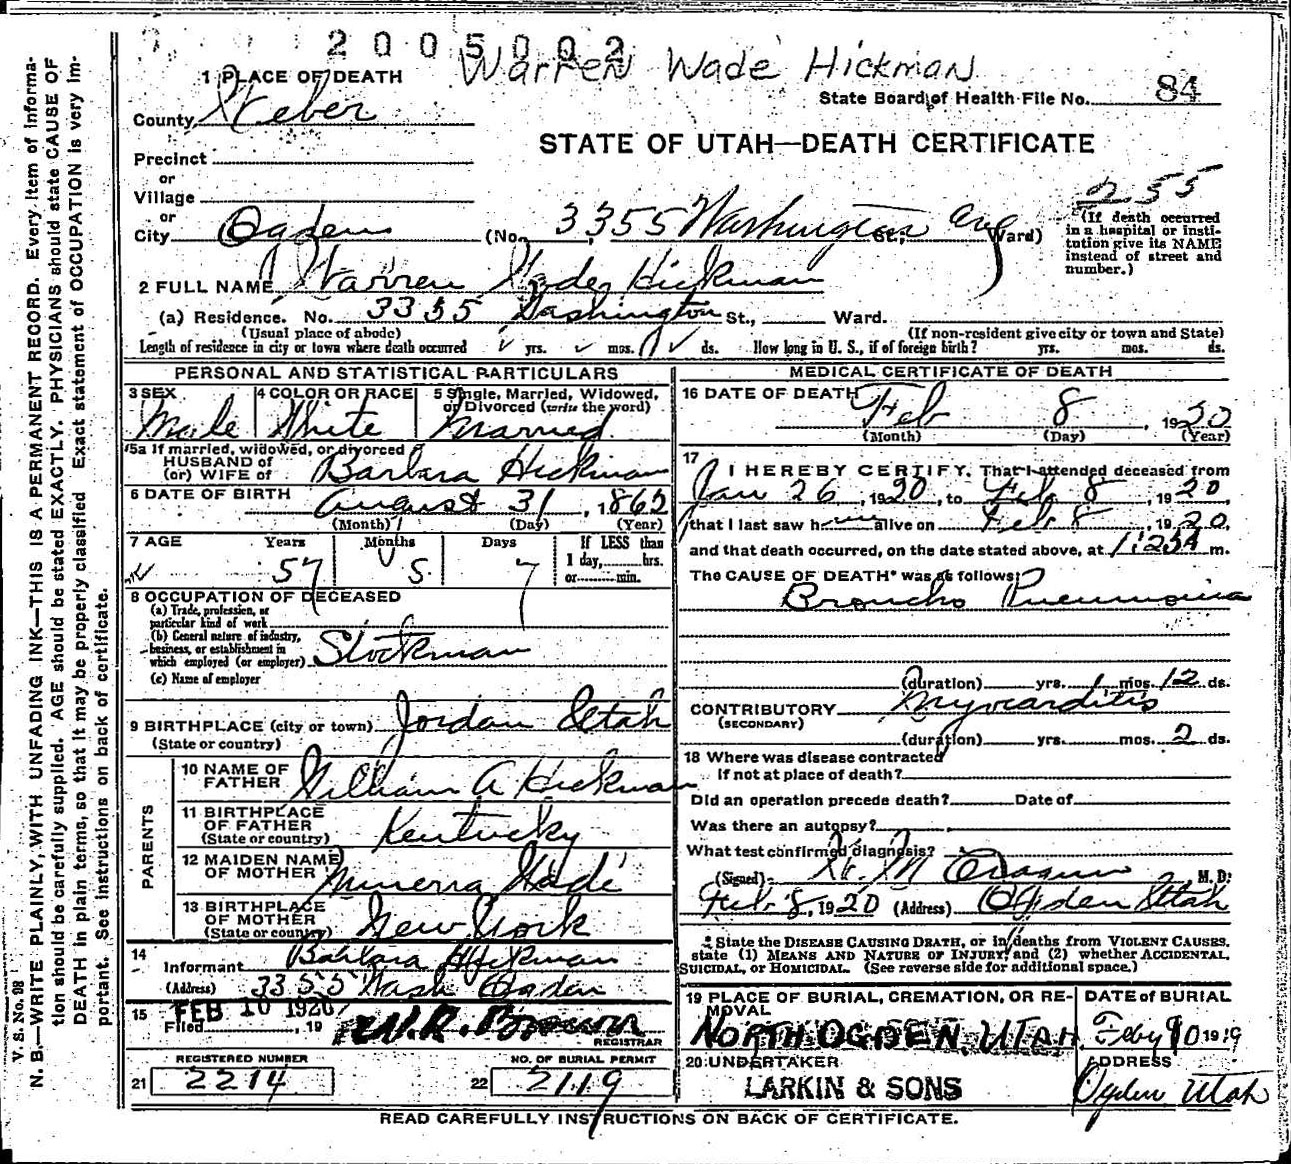 2005002
Warren Wade Hickman
1 PLACE OF DEATH
County Weber
State Board of Health File No. 84
STATE OF UTAH—DEATH CERTIFICATE
Precinct
or
Village
or
City Ogden (No. 3355 Washington Ave St.; Ward)
255
(If death occurred in a hospital or institution give its NAME instead of street and number.)
2 FULL NAME Warren Wade Hickman
(a) Residence. No. 3355 Washington St., Ward.
(Usual place of abode) (If non-resident give city or town and State)
Length of residence in city or town where death occurred yrs. mos. ds. How long in U. S., if of foreign birth? yrs. mos. ds.
PERSONAL AND STATISTICAL PARTICULARS
3 SEX Male
4 COLOR OR RACE White
5 Single, Married, Widowed, or Divorced (write the word) Married
5a If married, widowed, or divorced
HUSBAND of
(or) WIFE of Barbara Hickman
6 DATE OF BIRTH August 31, 1862
(Month) (Day) (Year)
7 AGE Years Months Days If LESS than
57 5 7 1 day, hrs.
or min.
8 OCCUPATION OF DECEASED
(a) Trade, profession, or
particular kind of work
(b) General nature of industry,
business, or establishment in
which employed (or employer) Stockman
(c) Name of employer
9 BIRTHPLACE (city or town) Jordan Utah
(State or country)
PARENTS
10 NAME OF FATHER William A Hickman
11 BIRTHPLACE OF FATHER
(State or country) Kentucky
12 MAIDEN NAME OF MOTHER Minerva Wade
13 BIRTHPLACE OF MOTHER
(State or country) New York
14
Informant Barbara Hickman
(Address) 3355 Wash Ogden
15 FEB 10 1920
Filed , 19 W. R. Brown
REGISTRAR
REGISTERED NUMBER NO. OF BURIAL PERMIT
21 2214 22 2119
MEDICAL CERTIFICATE OF DEATH
16 DATE OF DEATH Feb 8, 1920
(Month) (Day) (Year)
17 I HEREBY CERTIFY, That I attended deceased from
Jan 26, 1920, to Feb 8, 1920,
that I last saw h alive on Feb 8, 1920,
and that death occurred, on the date stated above, at m.
The CAUSE OF DEATH* was as follows:
Broncho Pneumonia
(duration) yrs. mos. 12 ds.
CONTRIBUTORY Myocarditis
(SECONDARY)
(duration) yrs. mos. 2 ds.
18 Where was disease contracted
If not at place of death?
Did an operation precede death? Date of
Was there an autopsy?
What test confirmed diagnosis?
(Signed) M. D.
Feb 8, 1920 (Address) Ogden Utah
* State the DISEASE CAUSING DEATH, or in deaths from VIOLENT CAUSES,
state (1) MEANS AND NATURE OF INJURY; and (2) whether ACCIDENTAL,
SUICIDAL, or HOMICIDAL. (See reverse side for additional space.)
19 PLACE OF BURIAL, CREMATION, OR REMOVAL
NORTH OGDEN, UTAH
DATE of BURIAL
Feby 10 1919
20 UNDERTAKER
LARKIN & SONS
ADDRESS
Ogden, Utah
READ CAREFULLY INSTRUCTIONS ON BACK OF CERTIFICATE.
V. S. No. 98
N. B.—WRITE PLAINLY, WITH UNFADING INK—THIS IS A PERMANENT RECORD. Every item of informa-
tion should be carefully supplied. AGE should be stated EXACTLY. PHYSICIANS should state CAUSE OF
DEATH in plain terms, so that it may be properly classified. Exact statement of OCCUPATION is very im-
portant. See instructions on back of certificate.